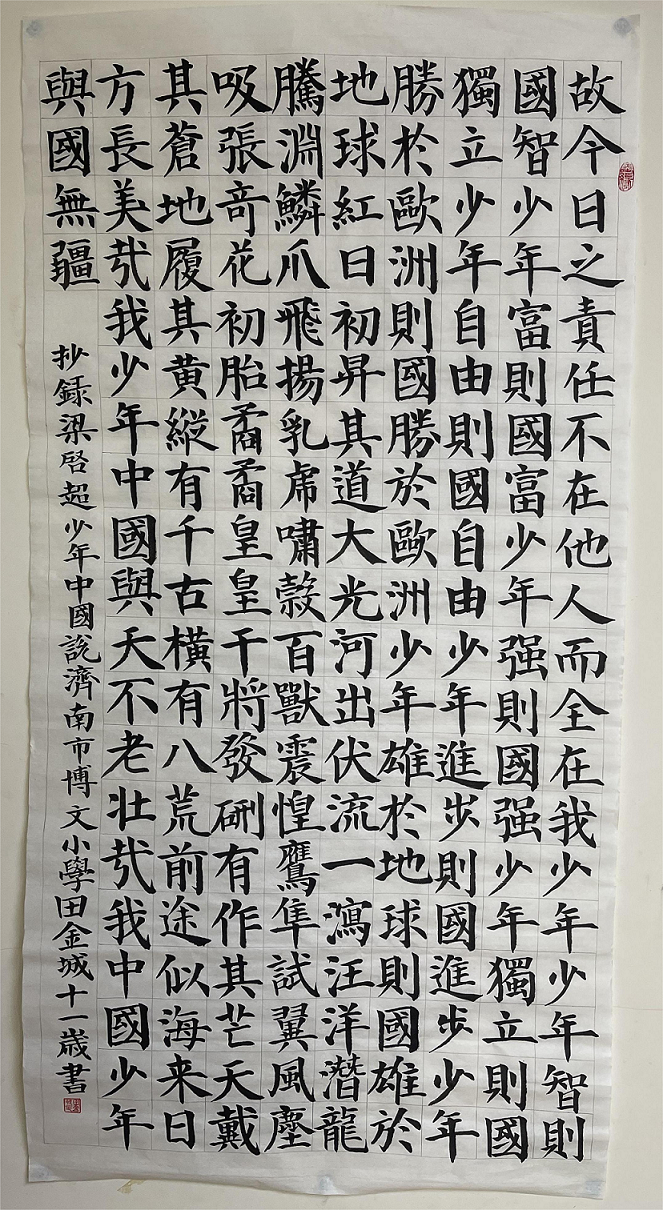 故今日之責任不在他人而全在我少年少年智則
國智少年富則國富少年强則國强少年獨立則國
獨立少年自由則國自由少年進步則國進步少年
勝於歐洲則國勝於歐洲少年雄於地球則國雄於
地球紅日初昇其道大光河出伏流一瀉汪洋潛龍
騰淵鱗爪飛揚乳虎嘯穀百獸震惶鷹隼試翼風塵
吸張竒花初胎矞矞皇皇干將發硎有作其芒天戴
其蒼地履其黄縱有千古橫有八荒前途似海来日
方長美哉我少年中國與天不老壮哉我中國少年
與國無疆
抄録梁啓超少年中國說濟南市博文小學田金城十一歲書